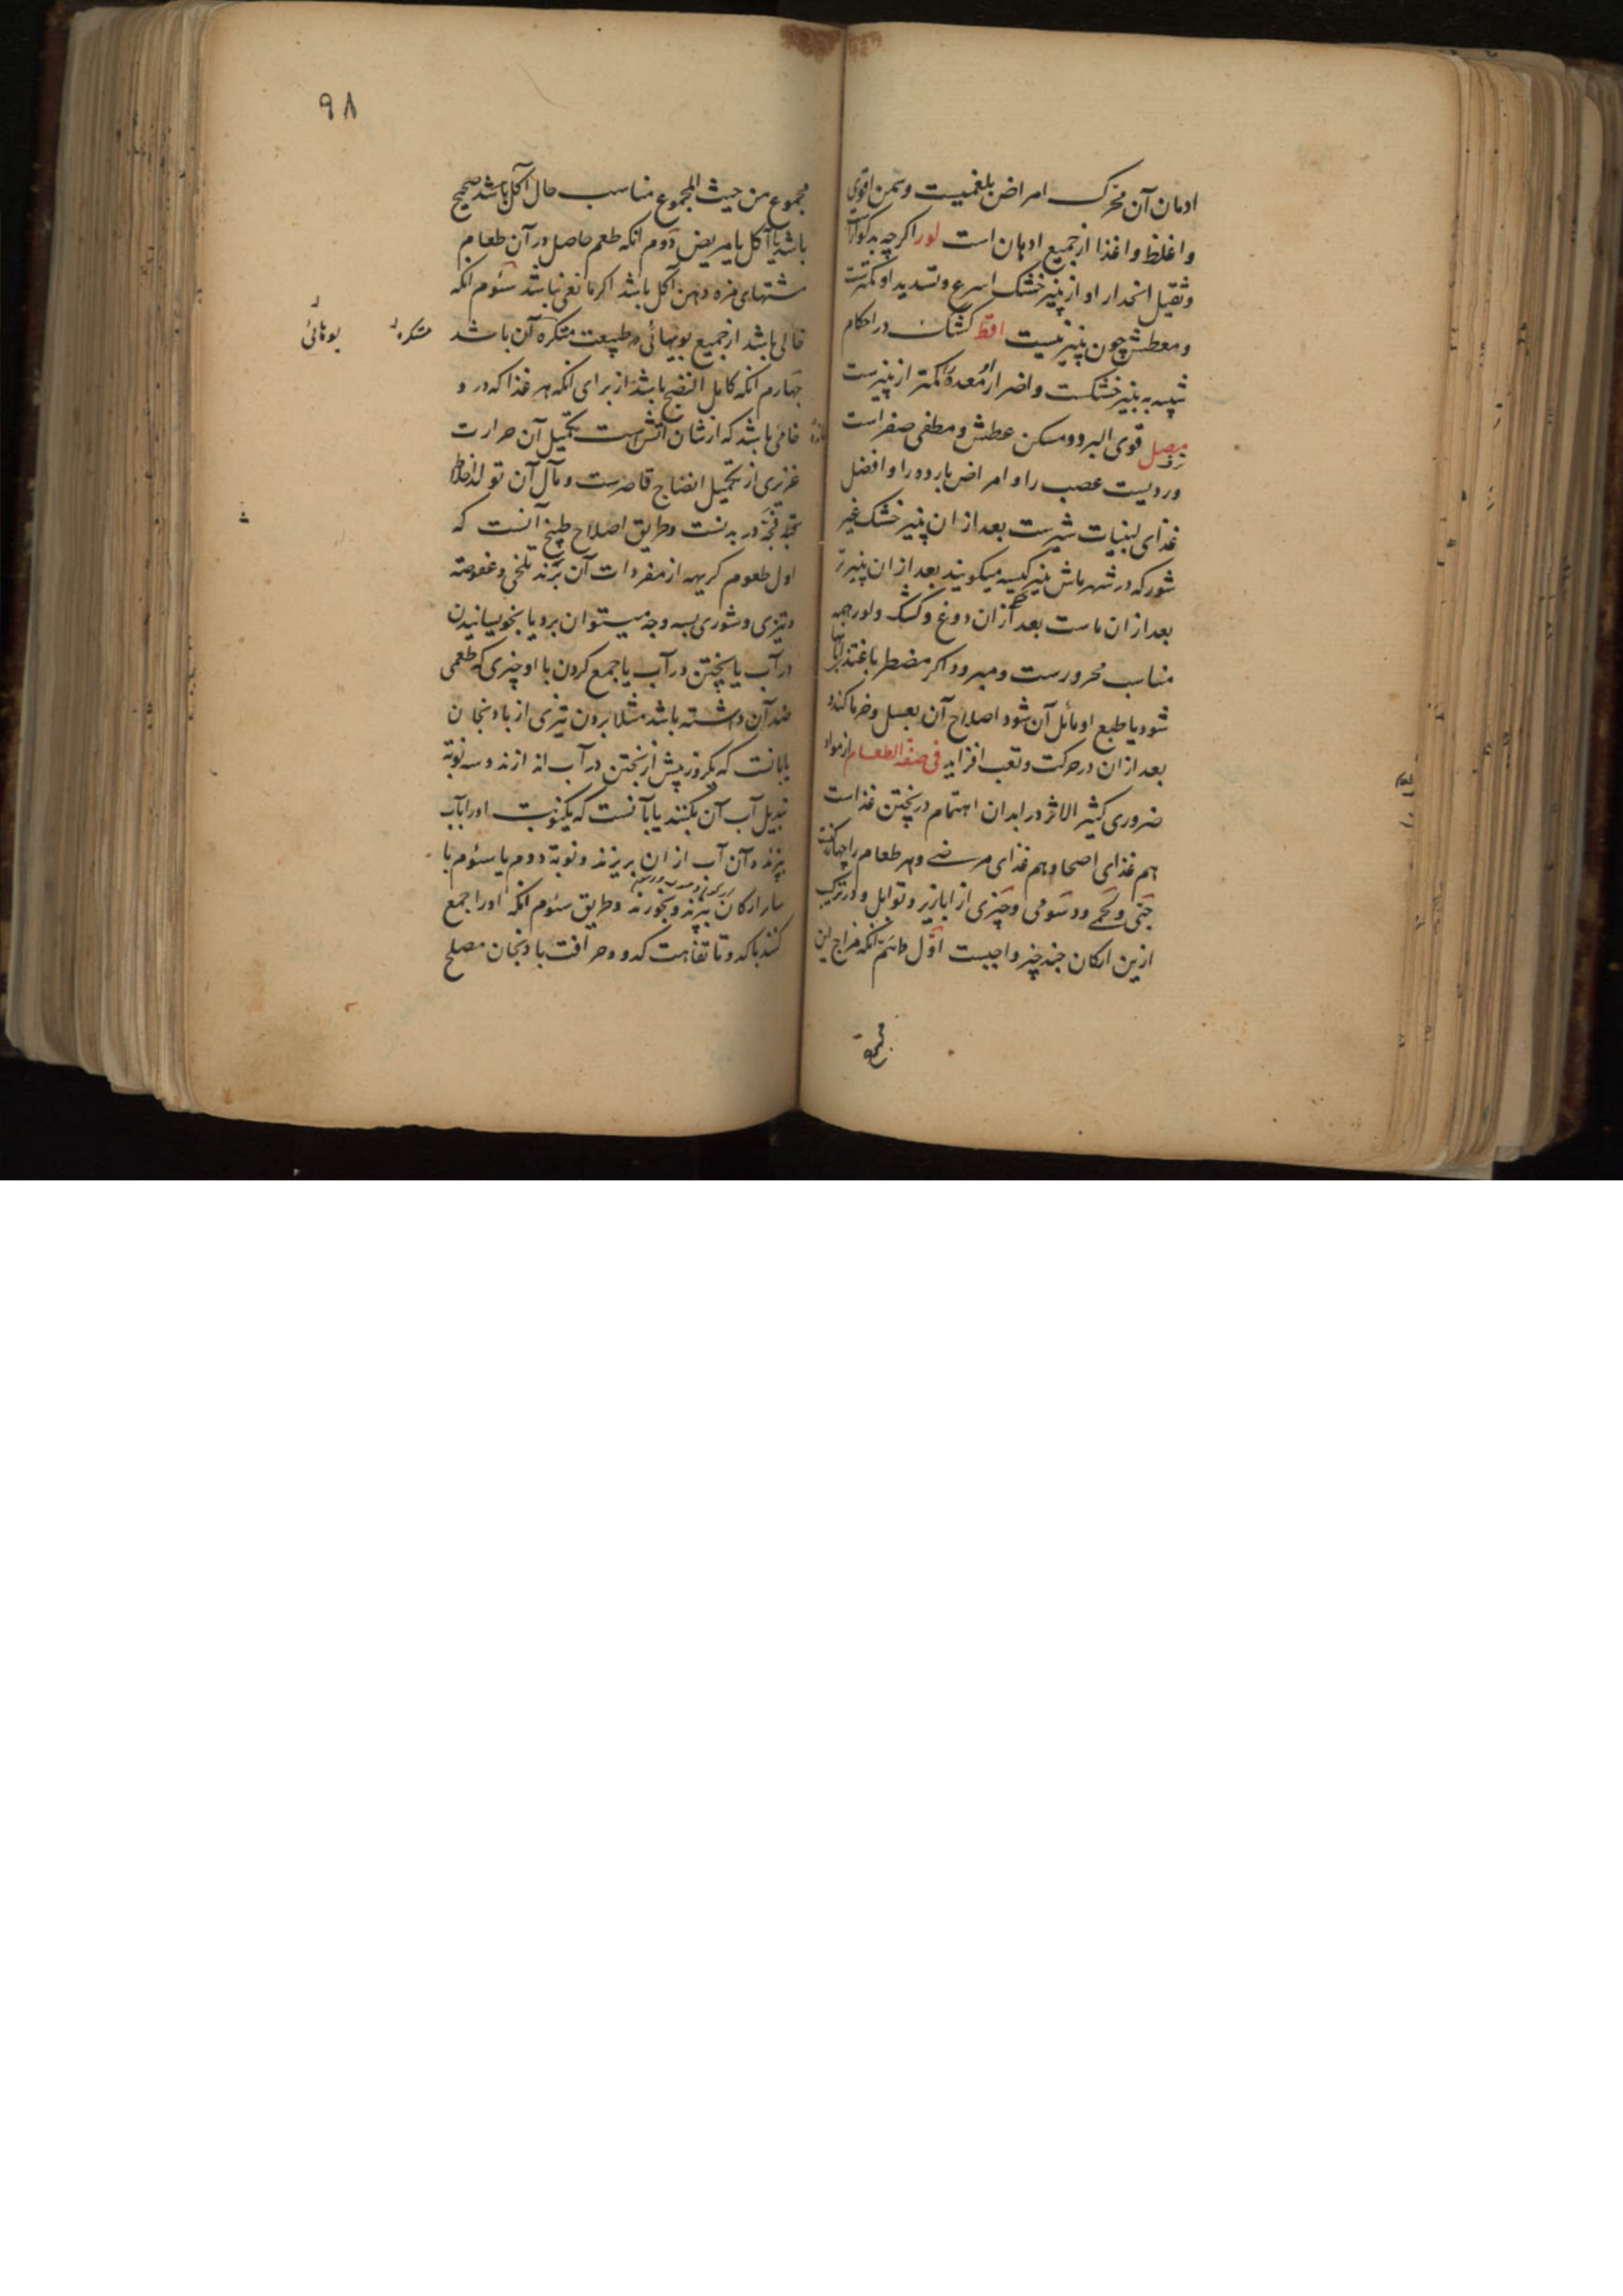 ادمان آن محرک امراض بلغمیست و سمن اقوی
و اغلظ و اغذا از جمیع ادهان است لور اکرچه بدکوارست
و ثقیل انحدار او از پنیر خشک اسرع و تسدید او کمترست
و معطش چون پنیر نیست اقط کشک در احکام
شبیه به پنیر خشکست و اضرار او معده را کمتر از پنیرست
مصل قوی البرد و مسکن عطش و مطفی صفراست
و ردیست عصب را و امراض بارده را و افضل
غذای لبنیات شیرست بعد از ان پنیر خشک غیر
شور که در شهر ماش پنیر کیسه میکویند بعد از ان پنیر تر
بعد از ان ماست بعد از ان دوغ و کشک و لور همه
مناسب محرورست و مبرود اکر مضطر باغتذا بانها
شود یا طبع او مائل آن شود اصلاح آن بعسل و خرما کند و
بعد از ان در حرکت و تعب افزاید فی صفة الطعام از مواد
ضروری کثیر الاثر در ابدان اهتمام در پختن غذاست
هم غذای اصحا و هم غذای مرضی و هر طعام را چهار رکنست
حبی و لحمی و دسومی و چیزی از ابازیر و توابل و در ترکیب
ازین ارکان چند چیز واجبست اول دانستم آنکه مزاج این
مجموع
۹۸
مجموع من حیث المجموع مناسب حال آکل باشد صحیح
باشد یا آکل یا مریض دوم آنکه طعم حاصل در آن طعام
مشتهای مزه دهن آکل باشد اکر مانعی نباشد سئوم آنکه
خالی باشد از جمیع بویهائی که طبیعت متکره آن باشد
متکره
بوهائی
چهارم آنکه کامل النضج باشد از برای آنکه هر غذا که در و
خامی باشد که از شان آتش است تکمیل آن حرارت
غریزی از تکمیل انضاج قاصرست و مآل آن تولد اخلاط
فجه در بدنست و طریق اصلاح طبخ آنست که
اول طعوم کریهه از مفردات آن برند تلخی و عفوصة
و تیزی و شوری بسه وجه میتوان برد یا بخویسانیدن
در آب یا پختن در آب یا جمع کردن با او چیزی که طعمی
ضد آن داشته باشد مثلا برون تیزی از بادنجان
یا بانست که یکروز پیش از پختن در آب اندازند و سه نوبة
تبدیل آب آن بکنند یا بآنست که یکنوبت او را بآب
بپزند و آن آب از ان بریزند و نوبة دوم یا سئوم با
سایر ارکان بپزند و بخورند و طریق سئوم آنکه او را جمع
کنند با کدو تا تفاهت کدو و حرافت بادنجان مصلح